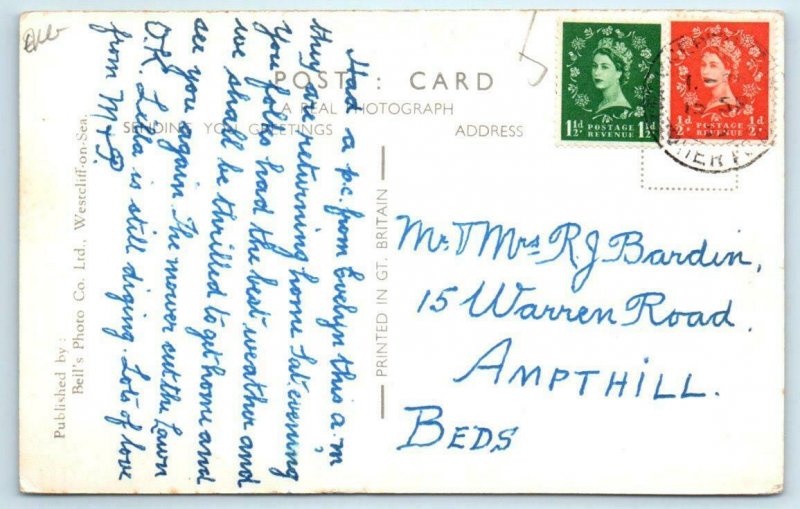 POST : CARD
A REAL PHOTOGRAPH
SENDING YOU GREETINGS
ADDRESS
Had a p.c. from Evelyn this a.m
they are returning home Sat. evening,
You folks had the best weather and
we shall be thrilled to get home and
see you again. The mower cut the Lawn
O.K. Lella is still diging. Lots of love
from M & D
Published by:
Beil's Photo Co. Ltd., Westcliff-on-Sea.
PRINTED IN GT. BRITAIN
1½d POSTAGE REVENUE 1½
½d POSTAGE REVENUE ½d
Mr. & Mrs R. J Bardin,
15 Warren Road,
AMPTHILL.
BEDS